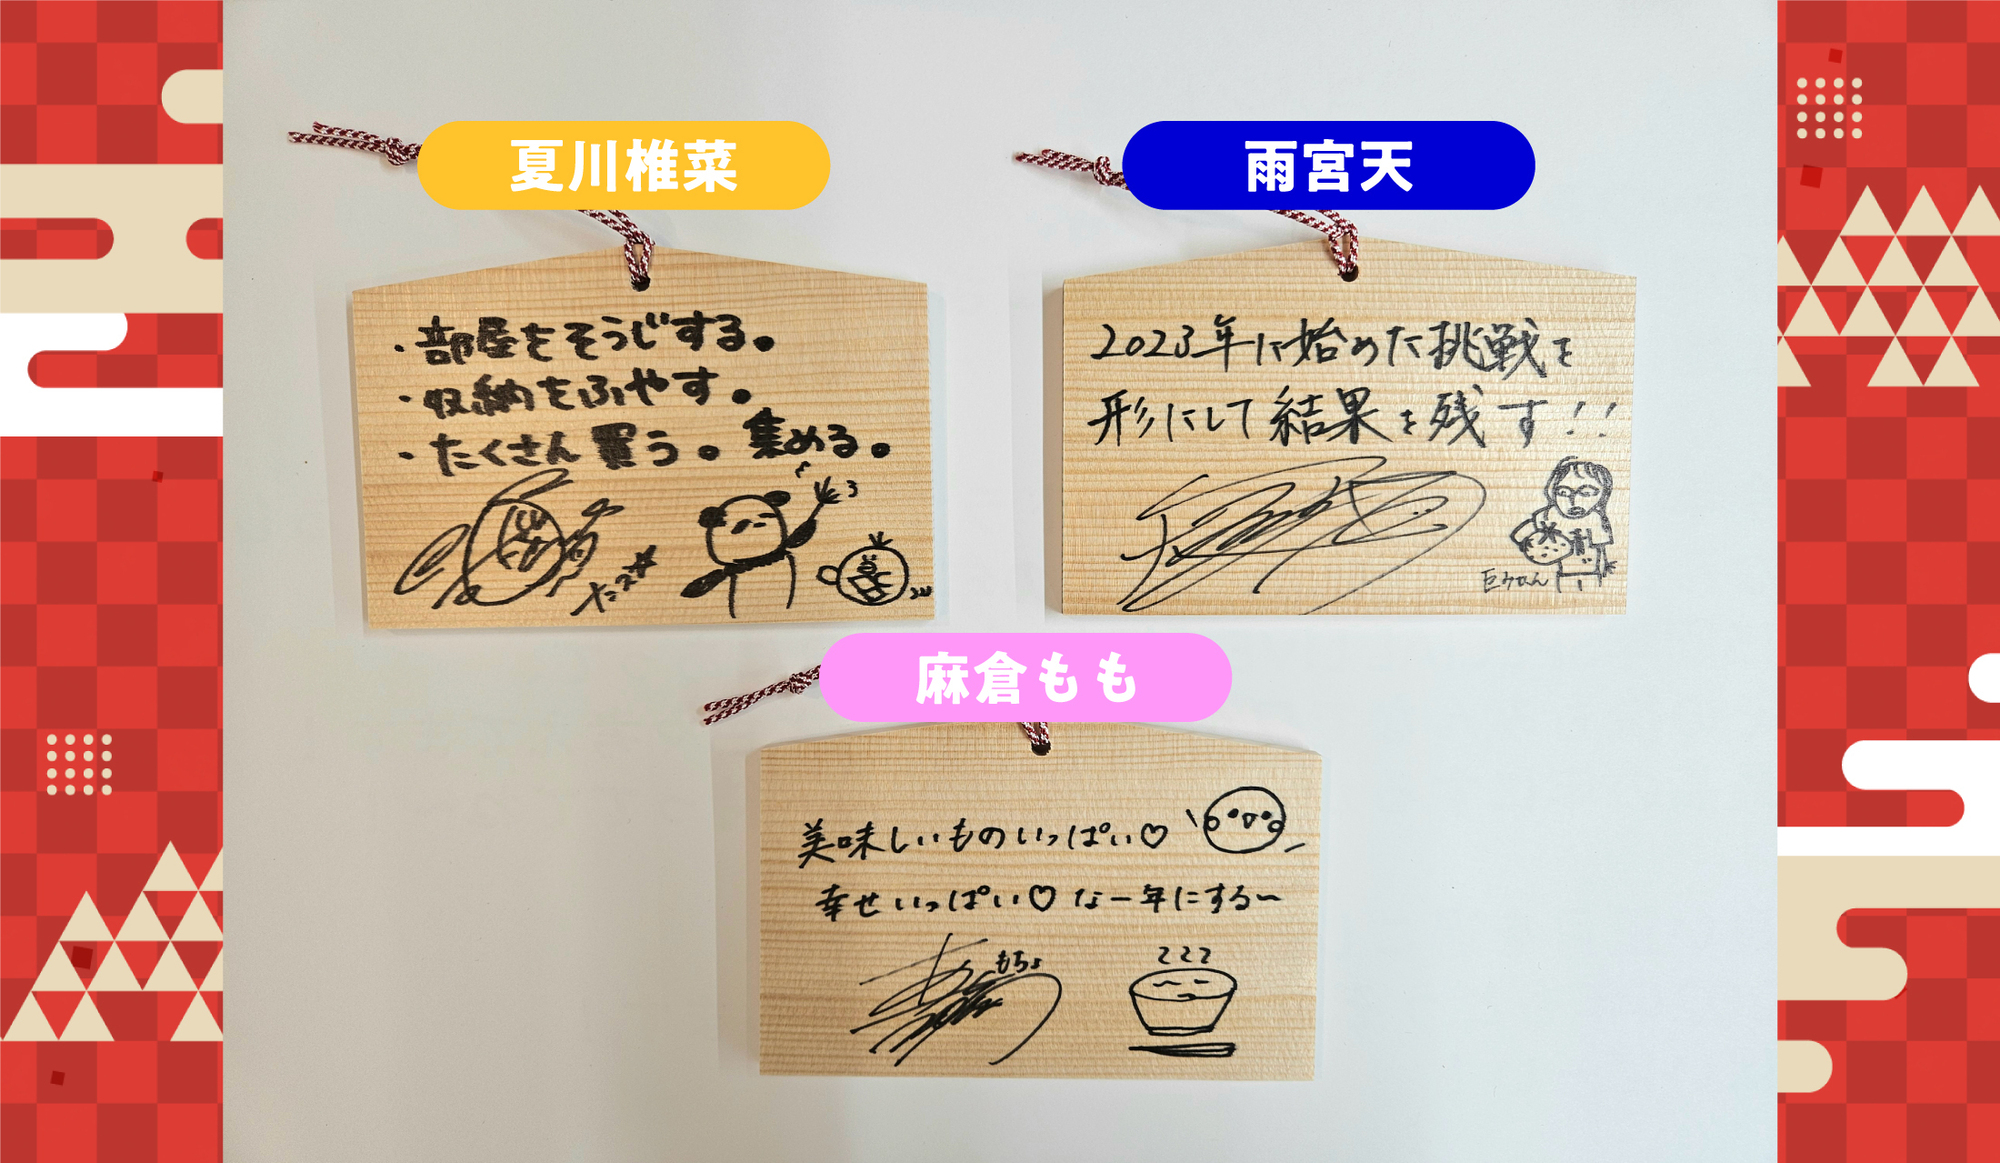 夏川椎菜
・部屋をそうじする。
・収納をふやす。
・たくさん買う。集める。
雨宮天
2023年に始めた挑戦を
形にして結果を残す!!
巨みかん
麻倉もも
美味しいものいっぱい♡
幸せいっぱい♡な一年にする〜
もちょ